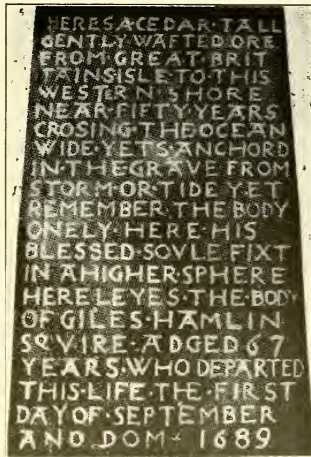 HERES A CEDAR · TALL
GENTLY WAFTED ORE
FROM GREAT · BRIT
TAINS ISLE · TO · THIS
WESTERN · SHORE
NEAR · FIFTY YEARS
CROSING · THE OCEAN
WIDE · YETS · ANCHORD
IN · THE GRAVE FROM
STORM · OR · TIDE YET
REMEMBER THE BODY
ONELY · HERE · HIS
BLESSED · SOVLE FIXT
IN A HIGHER · SPHERE
HERE LEYES · THE · BODY
OF GILES · HAMLIN
SQVIRE · ADGED 67
YEARS · WHO DEPARTED
THIS · LIFE · THE · FIRST
DAY OF · SEPTEMBER
ANO DOM · 1689